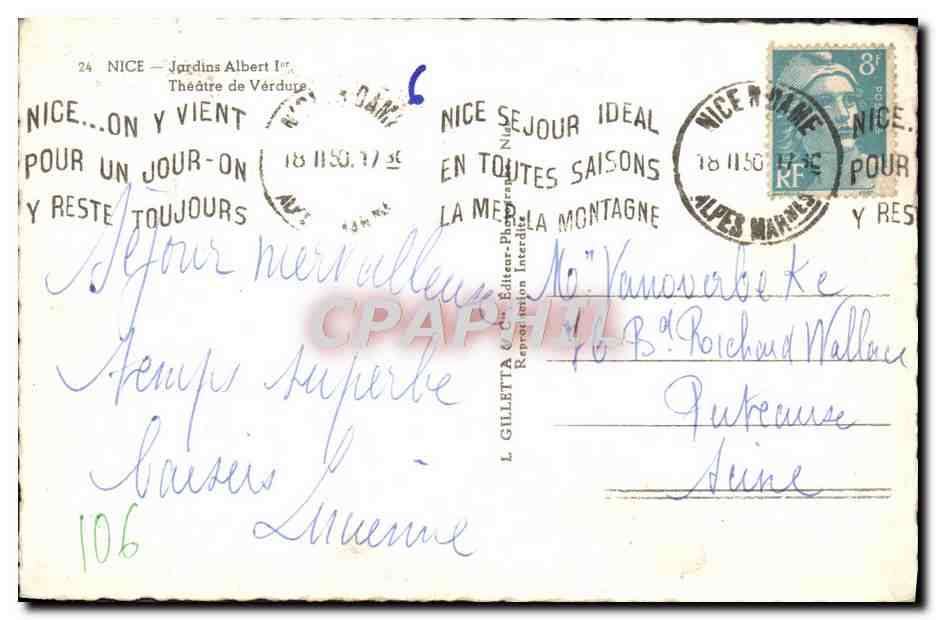 24 NICE — Jardins Albert Ier
Théâtre de Verdure
6
NICE...ON Y VIENT
POUR UN JOUR-ON
Y RESTE TOUJOURS
18 II 50. 17 30
NICE SEJOUR IDEAL
EN TOUTES SAISONS
LA MER LA MONTAGNE
NICE N DAME
18 II 50 17 30
ALPES MARMES
8F
POSTES
RF
NICE..
POUR
Y RES
L GILLETTA & Cie, Éditeur-Photographe, Nice
Reproduction Interdite
CPAPHIL
Séjour merveilleux
temps superbe
baisers
Lucienne
106
Mon Vanoverbeke
76 Bd Roichard Wallace
Puteause
Seine